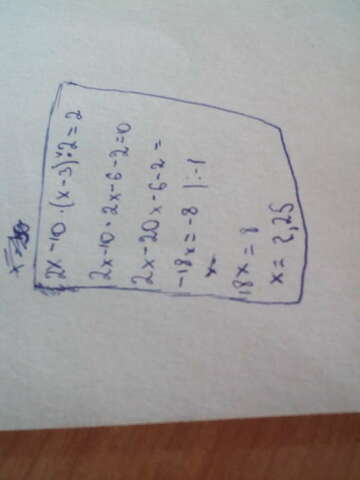 2x-10·(x-3):2=2
2x-10·2x-6-2=0
2x-20x-6-2=
-18x=-8 |:-1
x
18x=8
x=2,25